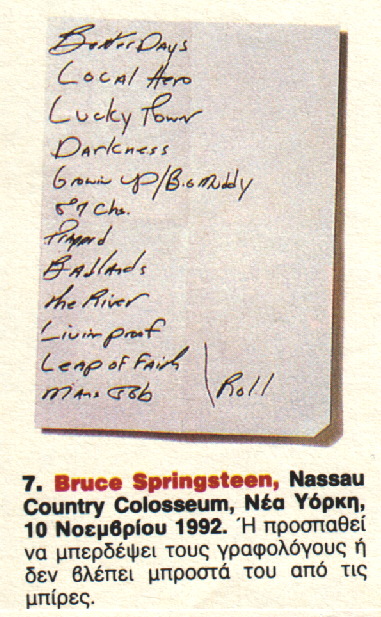 Better Days
Local Hero
Lucky Town
Darkness
Growin up/Big Muddy
57 Chs.
Badlands
the River
Livin proof
Leap of Faith
Mans Job
Roll
7. Bruce Springsteen, Nassau
Country Colosseum, Νέα Υόρκη,
10 Νοεμβρίου 1992. Ή προσπαθεί
να μπερδέψει τους γραφολόγους ή
δεν βλέπει μπροστά του από τις
μπίρες.